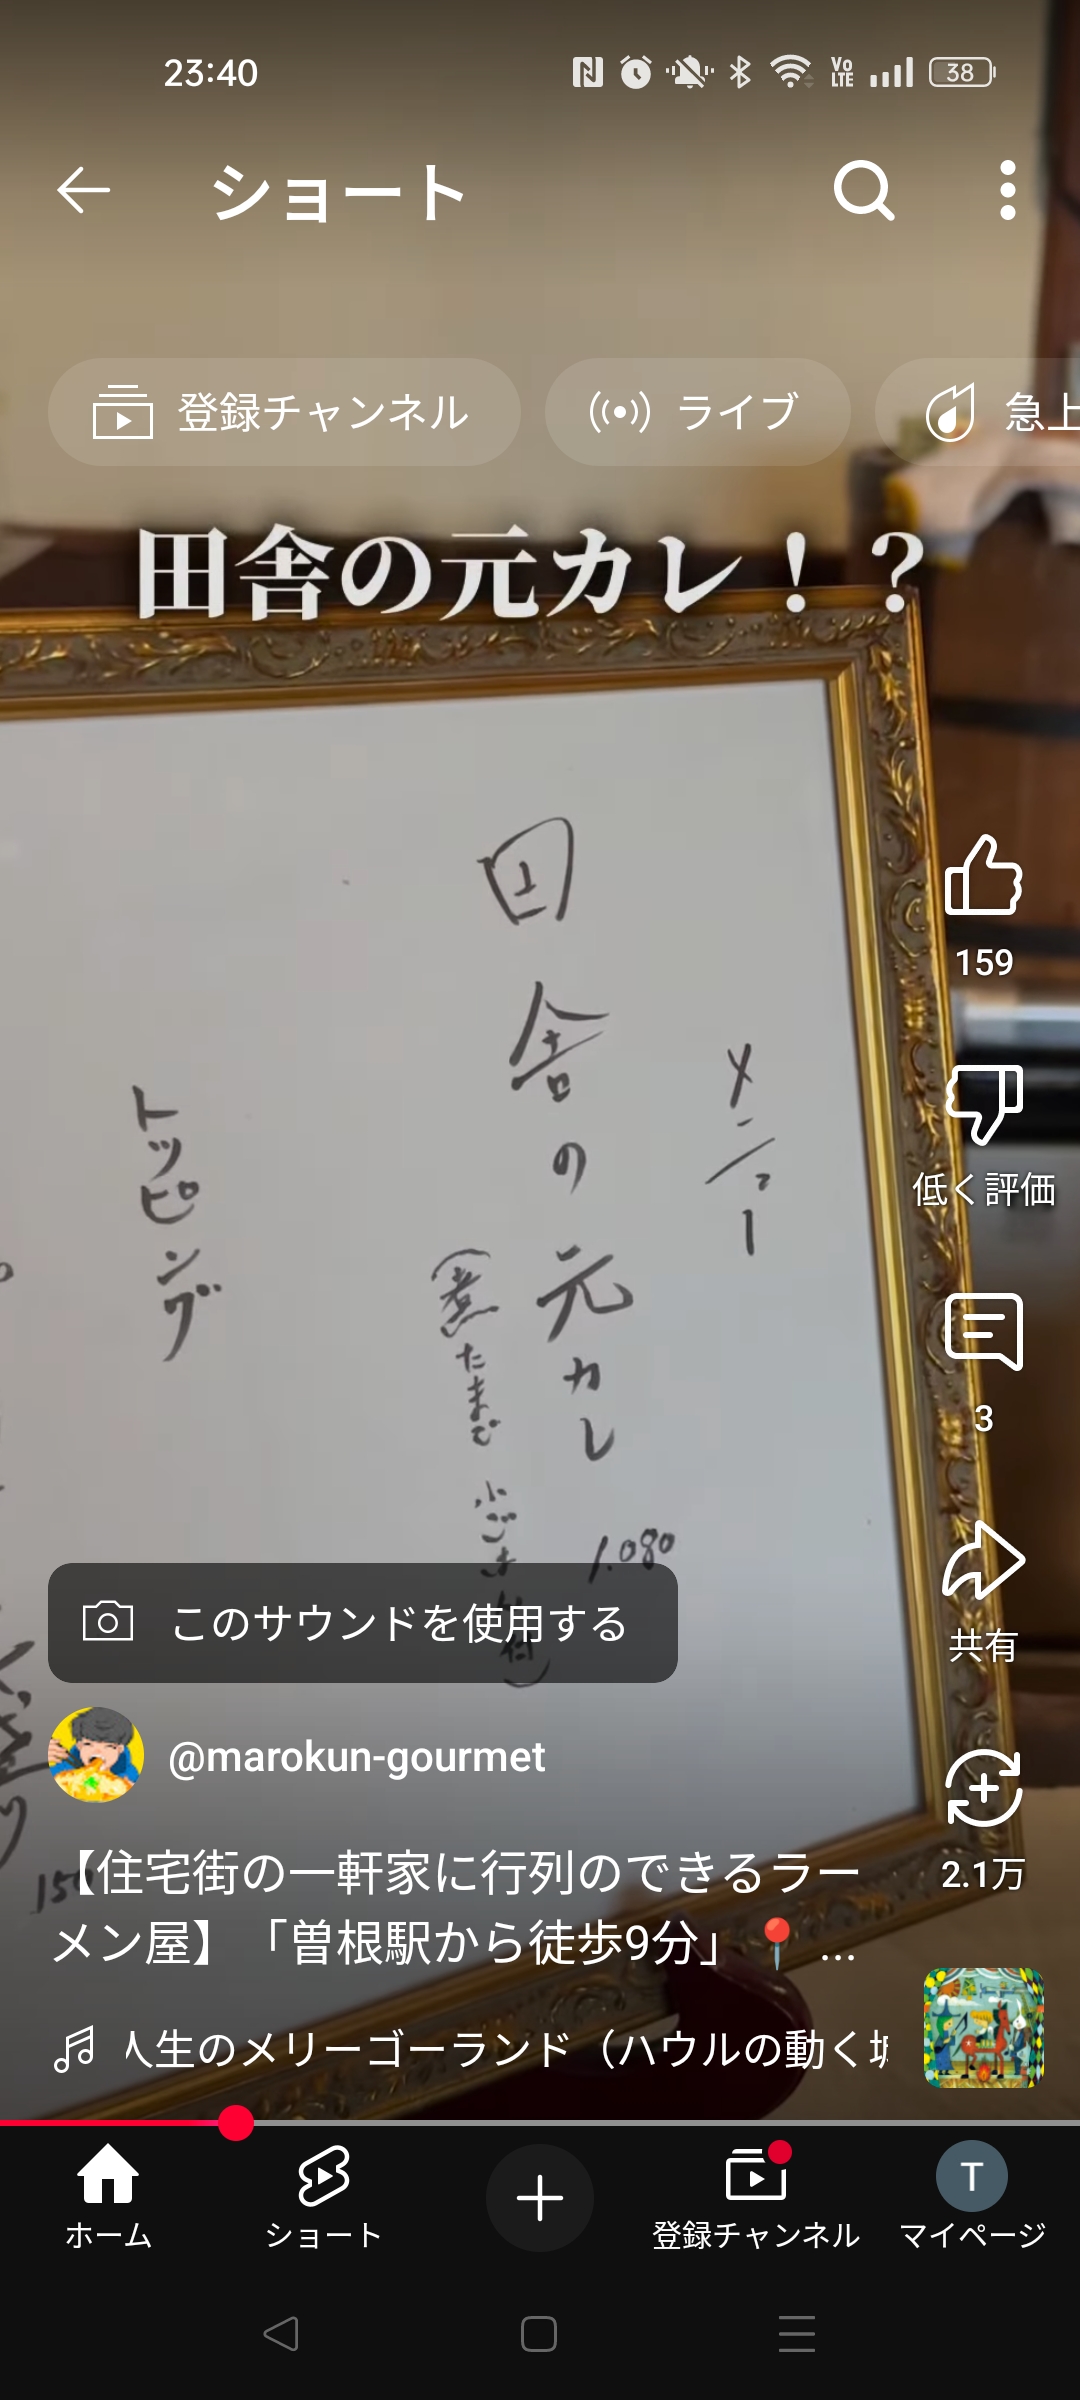 23:40
Vo LTE
38
ショート
登録チャンネル
ライブ
急上
田舎の元カレ！？
メニュー
田舎の元カレ
1.080
(煮たまご 小ごはん付)
トッピング
150
159
低く評価
3
共有
2.1万
このサウンドを使用する
@marokun-gourmet
【住宅街の一軒家に行列のできるラー
メン屋】「曽根駅から徒歩9分」📍 ...
人生のメリーゴーランド（ハウルの動く城
ホーム
ショート
登録チャンネル
T
マイページ